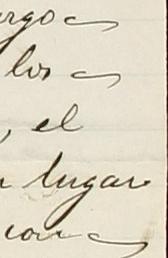 ergo
los
, el
lugar
con